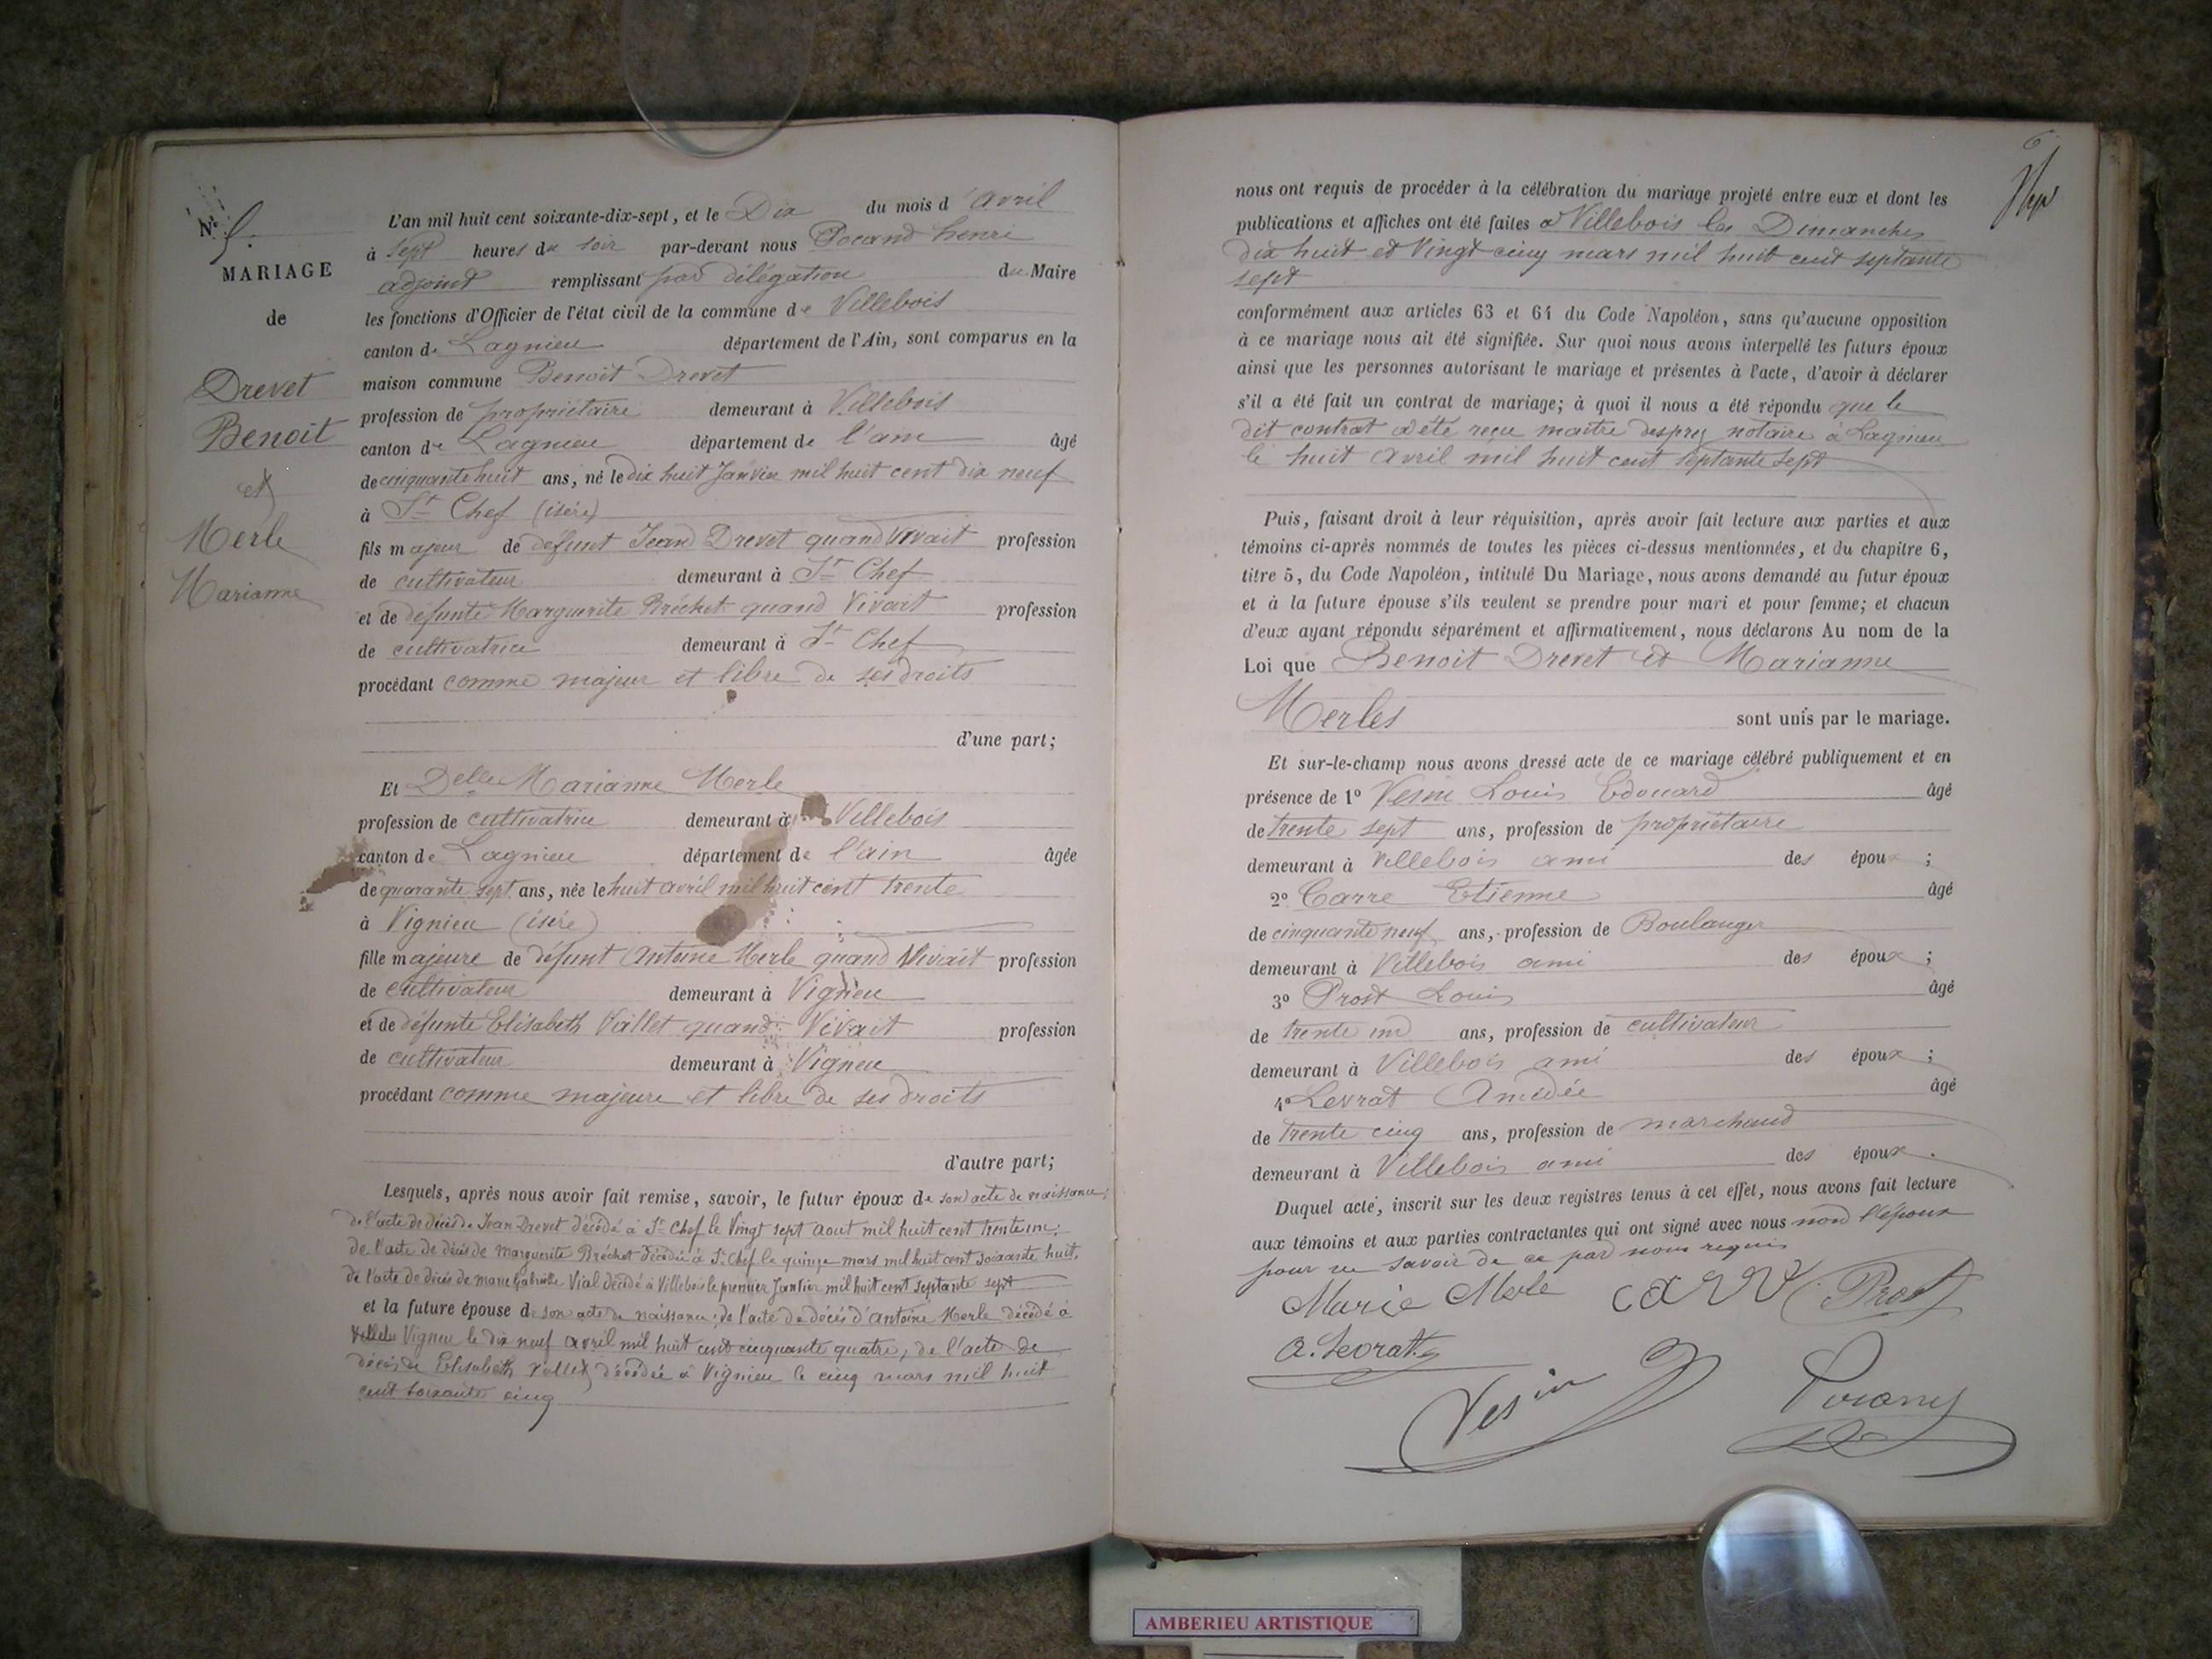 N° 5.
MARIAGE
de
Drevet
Benoit
et
Merle
Marianne
L'an mil huit cent soixante-dix-sept, et le Dix du mois d'Avril
à sept heures du soir par-devant nous Pocand henri
adjoint remplissant par délégation du Maire
les fonctions d'Officier de l'état civil de la commune de Villebois
canton de Lagnieu département de l'Ain, sont comparus en la
maison commune Benoit Drevet
profession de propriétaire demeurant à Villebois
canton de Lagnieu département de l'ain âgé
de cinquante huit ans, né le dix huit Janvier mil huit cent dix neuf
à St Chef (isère)
fils majeur de défunt Jean Drevet quand vivait profession
de cultivateur demeurant à St Chef
et de défunte Marguerite Bréchet quand Vivait profession
de cultivatrice demeurant à St Chef
procédant comme majeur et libre de ses droits
d'une part;
Et Delle Marianne Merle
profession de cultivatrice demeurant à Villebois
canton de Lagnieu département de l'ain âgée
de quarante sept ans, née le huit avril mil huit cent trente
à Vignieu (isère)
fille majeure de défunt Antoine Merle quand Vivait profession
de cultivateur demeurant à Vignieu
et de défunte Elisabeth Vallet quand Vivait profession
de cultivateur demeurant à Vigneu
procédant comme majeure et libre de ses droits
d'autre part;
Lesquels, après nous avoir fait remise, savoir, le futur époux de son acte de naissance;
de l'acte de décès de Jean Drevet décédé à St Chef le Vingt sept Aout mil huit cent trente un;
de l'acte de décès de Marguerite Bréchet décédée à St Chef le quinze mars mil huit cent soixante huit,
de l'acte de décès de marie Gabrielle Vial décédé à Villebois le premier Janvier mil huit cent septante sept
et la future épouse de son acte de naissance; de l'acte de décès d'Antoine Merle décédé à
Vigneu le dix neuf avril mil huit cent cinquante quatre, de l'acte de
décès de Elisabeth Vallet décédée à Vignieu le cinq mars mil huit
cent soixante cinq
nous ont requis de procéder à la célébration du mariage projeté entre eux et dont les
publications et affiches ont été faites à Villebois les Dimanches
dix huit et Vingt cinq mars mil huit cent septante
sept
conformément aux articles 63 et 64 du Code Napoléon, sans qu'aucune opposition
à ce mariage nous ait été signifiée. Sur quoi nous avons interpellé les futurs époux
ainsi que les personnes autorisant le mariage et présentes à l'acte, d'avoir à déclarer
s'il a été fait un contrat de mariage; à quoi il nous a été répondu que le
dit contrat a été reçu maitre desprez notaire à Lagnieu
le huit Avril mil huit cent septante sept
Puis, faisant droit à leur réquisition, après avoir fait lecture aux parties et aux
témoins ci-après nommés de toutes les pièces ci-dessus mentionnées, et du chapitre 6,
titre 5, du Code Napoléon, intitulé Du Mariage, nous avons demandé au futur époux
et à la future épouse s'ils veulent se prendre pour mari et pour femme; et chacun
d'eux ayant répondu séparément et affirmativement, nous déclarons Au nom de la
Loi que Benoit Drevet et Marianne
Merles sont unis par le mariage.
Et sur-le-champ nous avons dressé acte de ce mariage célébré publiquement et en
présence de 1° Vesin Louis Edouard âgé
de trente sept ans, profession de propriétaire
demeurant à Villebois ami des époux ;
2° Carre Etienne âgé
de cinquante neuf ans, profession de Boulanger
demeurant à Villebois ami des époux ;
3° Prost Louis âgé
de trente un ans, profession de cultivateur
demeurant à Villebois ami des époux ;
4° Levrat Amédée âgé
de trente cinq ans, profession de marchand
demeurant à Villebois ami des époux .
Duquel acte, inscrit sur les deux registres tenus à cet effet, nous avons fait lecture
aux témoins et aux parties contractantes qui ont signé avec nous non l'époux
pour ne savoir de ce par nous requis
Marie Merle carre Prost
a. Levrat
Vesin
AMBERIEU ARTISTIQUE